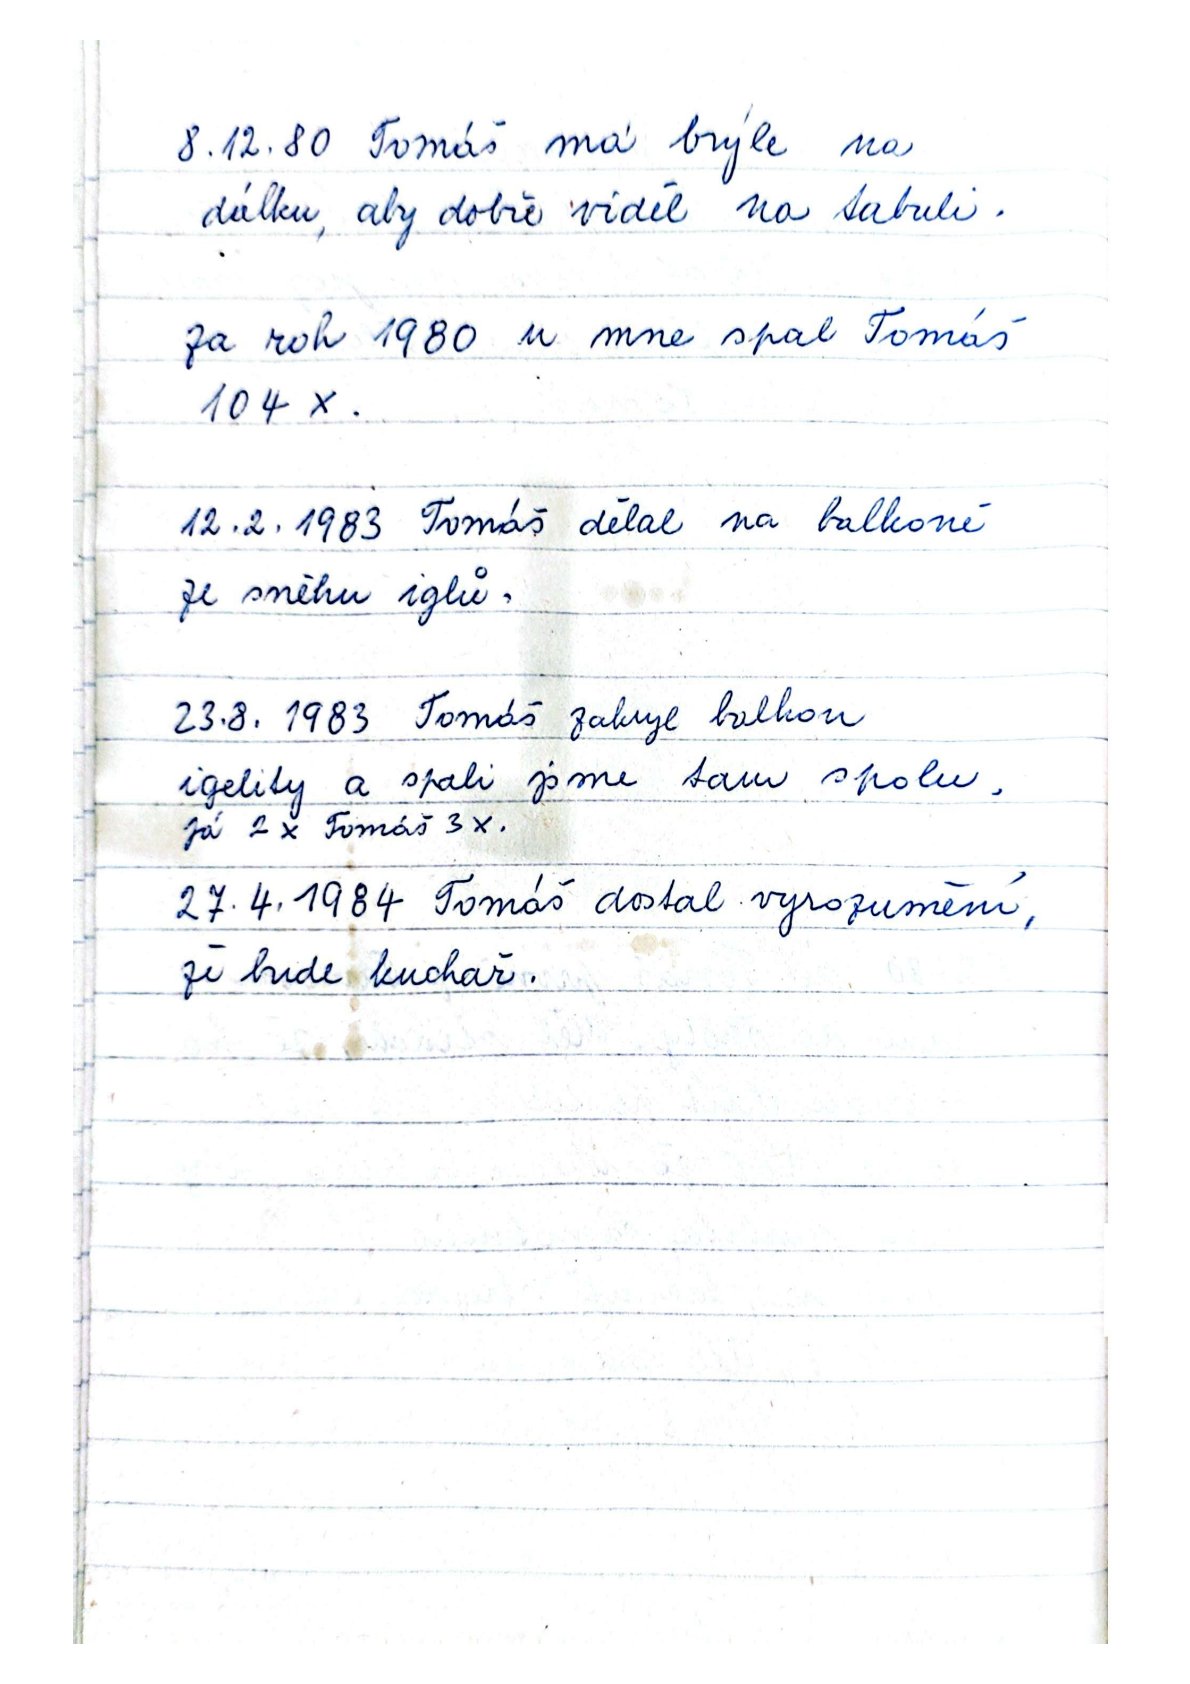 8.12.80 Tomáš má brýle na
dálku, aby dobře viděl na tabuli.
Za rok 1980 u mne spal Tomáš
104 x.
12.2.1983 Tomáš dělal na balkoně
ze sněhu iglů.
23.8.1983 Tomáš zakryl balkon
igelity a spali jsme tam spolu.
Já 2 x Tomáš 3 x.
27.4.1984 Tomáš dostal vyrozumění,
že bude kuchař.